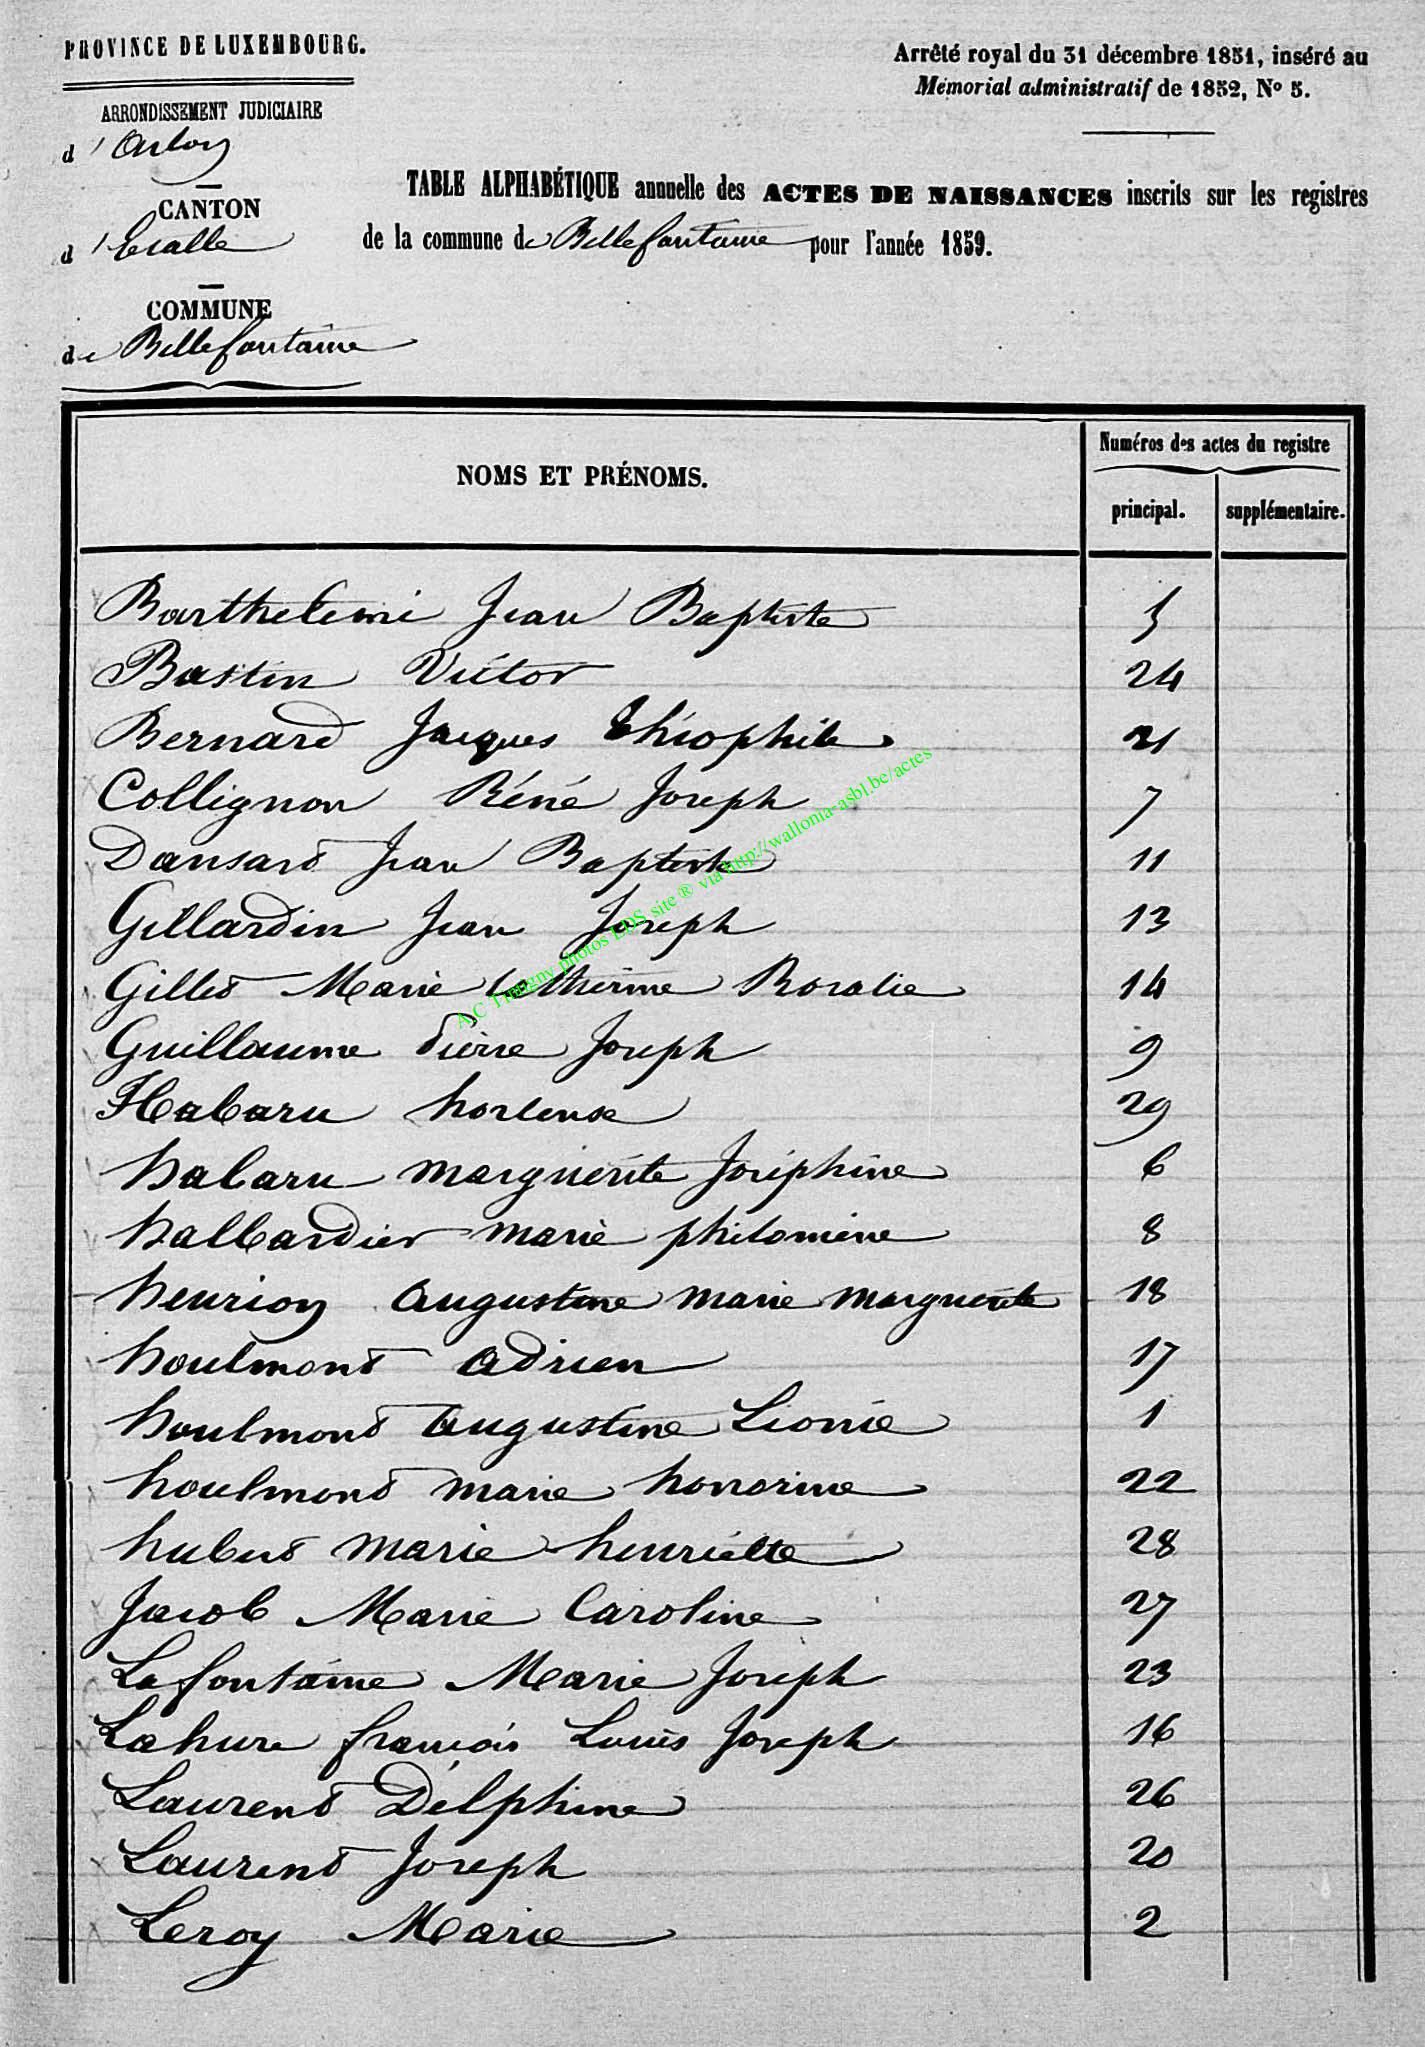 PROVINCE DE LUXEMBOURG.
Arrêté royal du 31 décembre 1851, inséré au
Mémorial administratif de 1852, No 5.
ARRONDISSEMENT JUDICIAIRE
d'Arlon
CANTON
d'Etalle
COMMUNE
de Bellefontaine
TABLE ALPHABÉTIQUE annuelle des ACTES DE NAISSANCES inscrits sur les registres
de la commune de Bellefontaine pour l'année 1859.
NOMS ET PRÉNOMS.
Numéros des actes du registre
principal. supplémentaire.
Barthelemi Jean Baptiste 5
Bastin Victor 24
Bernard Jacques théophile 21
Collignon Réné Joseph 7
Dansard Jean Baptiste 11
Gillardin Jean Joseph 13
Gillet Marie Catherine Rosalie 14
Guillaume Pierre Joseph 9
Habaru hortense 29
habaru marguerite Joséphine 6
halbardier marie philomène 8
henrion augustine marie marguerite 18
houlmont adrien 17
houlmont augustine Léonie 1
houlmont marie honorine 22
hubert marie henriette 28
Jacob Marie Caroline 27
Lafontaine Marie Joseph 23
Lahure françois Louis Joseph 16
Laurent Delphine 26
Laurent Joseph 20
Leroy Marie 2
A.C Tintigny photos EDS site ® via http://wallonia-asbl.be/actes